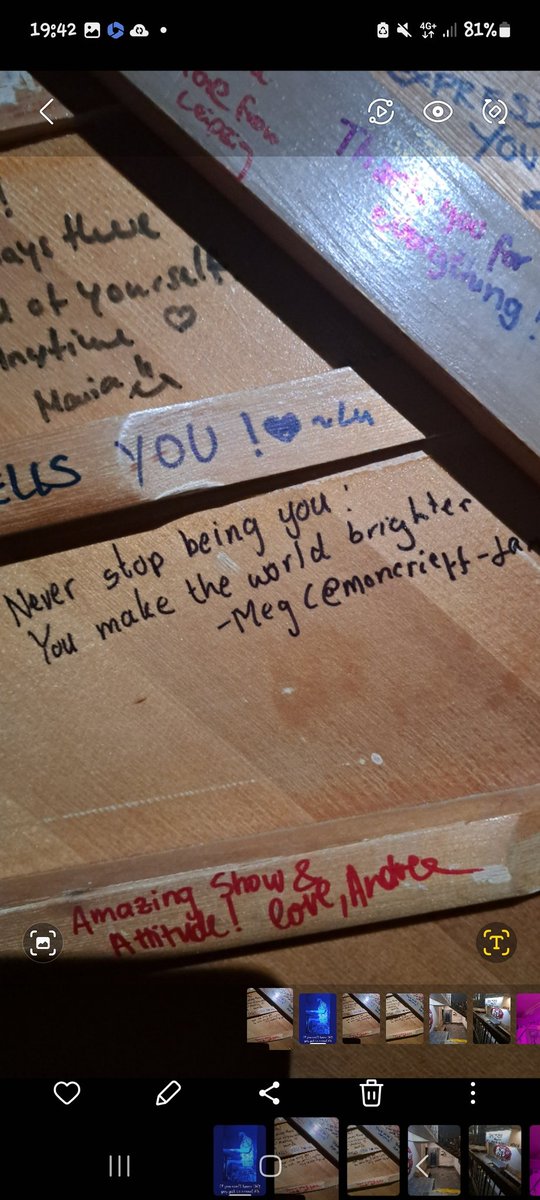 19:42
4G+
81%
love from
Leipzig
EXPRESS
YOU
Thank you for
everything!
!
ays there
of yourself
Anytime ♡
Maria
ELLS YOU ! ♥ ~Lu
Never stop being you!
You make the world brighter
-Meg (@moncrieff-la
Amazing Show &
Attitude! love, Andrea
T